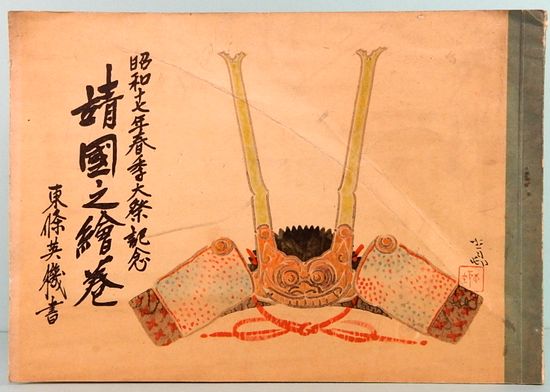 昭和十七年春季大祭記念
靖國之繪巻
東條英機書